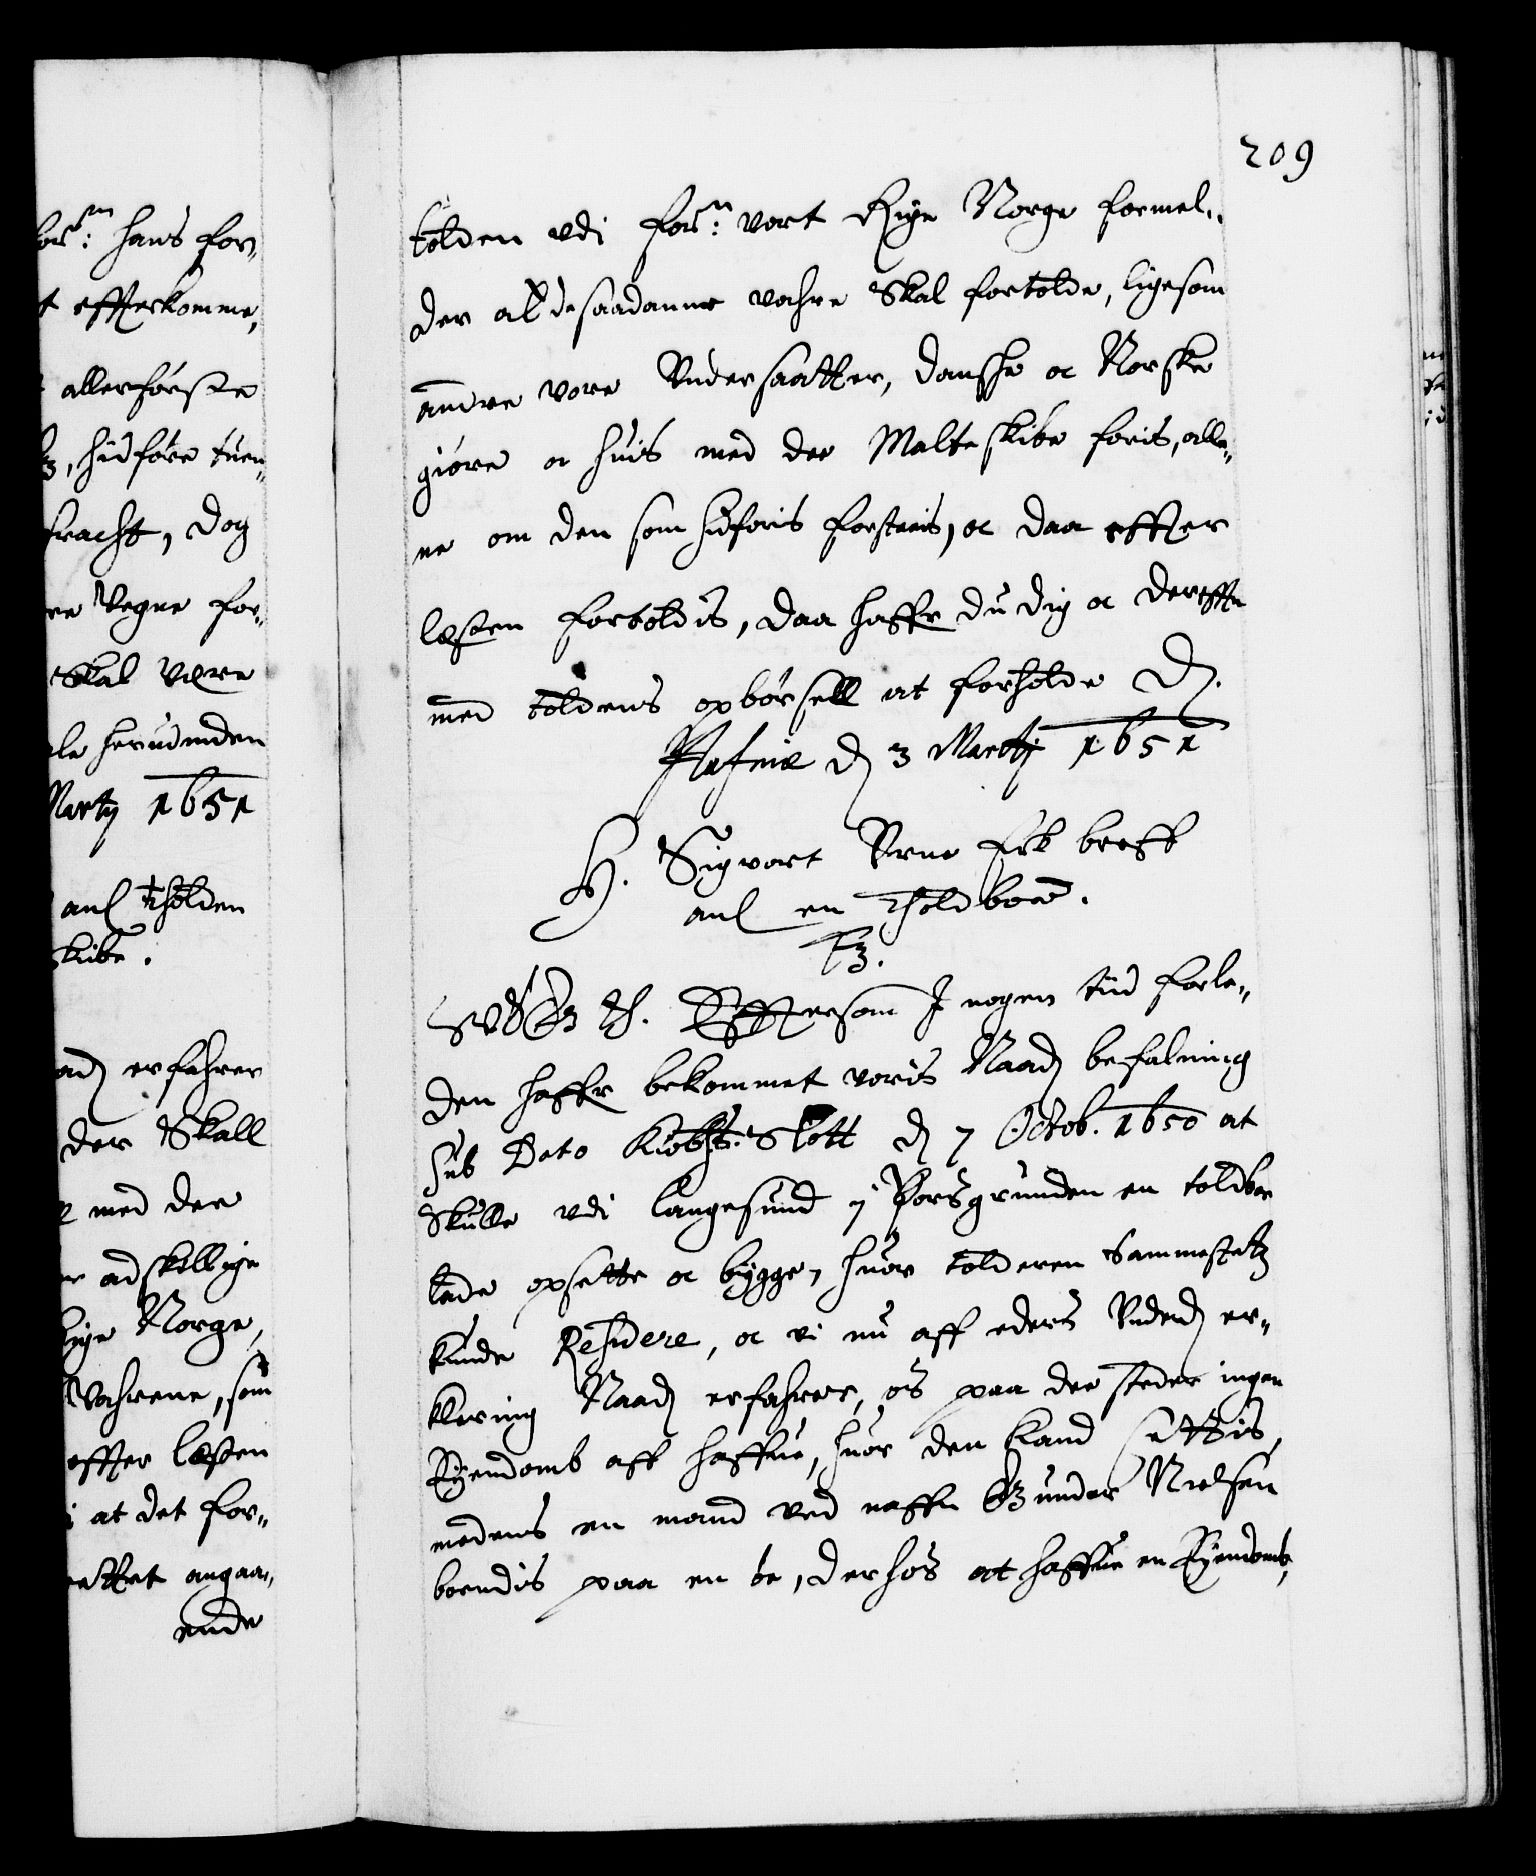 209
tolden udj forn: vort Rige Norge formel„
der at de saadanne vahre skal fortolde, ligesom
andre vore Undersaatter, danske oc Norske
giøre oc huis med der Malte skibe føris, alle„
ne om den som hidføris forstaais, oc daa effter
lesten fortoldis, daa haffr du dig oc dereffter
med toldens opbørsell at forholde D.
Hafniæ d 3 Martij 1651
H. Sigvort Urne fik breff
anl en Tholdboed.
F3.
Effttersom J nogen tiid forle„
den haffr bekommet voris Naad befalning
sub Dato Kiøbh: Slott d 7 Octob. 1650 at
skulle udi Langesund j Porsgrunden en toldboe
lade opsette oc bygge, huor tolderen sammestetz
kunde Residere, oc vi nu aff eders Underd er„
klering Naad erfahrer, os paa dee steder ingen
Eyendomb aff haffue, huor den kand settis,
medens en mand ved naffn Gunder Nielsen
boendis paa en øe, derhos at haffue en Eyendomb,
forn: hans for„
t effterkomme,
allerførste
hidføre tuen„
fracht, dog
re Vegne for„
skal være
ale herudinden
Martij 1651
anl Tholden
skibe.
ad erfahrer
der Skall
e med dee
er adskellige
Rige Norge,
Vahrene, som
effter lesten
at det for„
rettet angaa„
ende